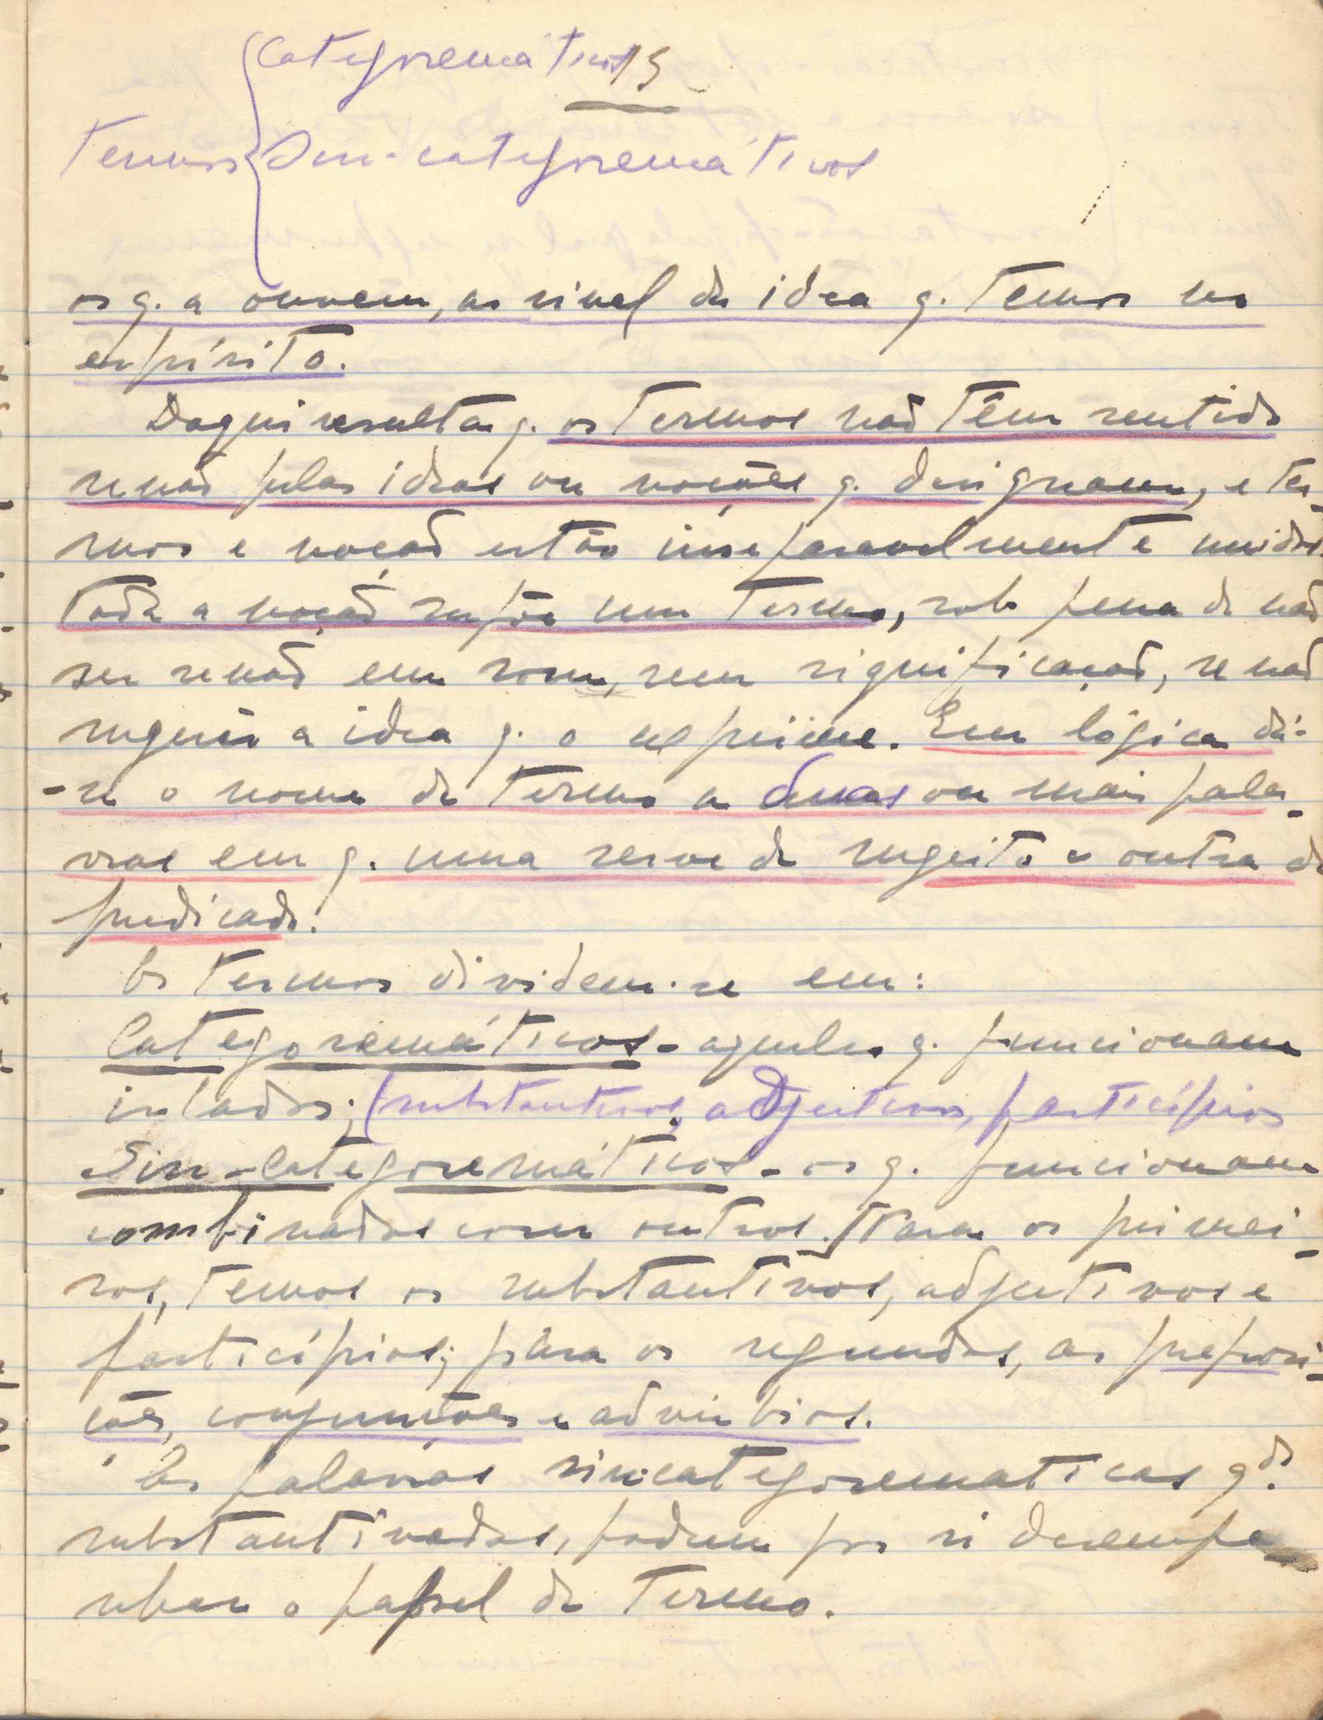 Categoremáticos 15
Termos
Sin-categoremáticos
os q. a ouvem, ao nivel da idea q. temos no
espírito.
Daqui resulta q. os termos não têm sentido
senão pelas ideas ou noções q. designam, e ter-
mos e noção estão inseparavelmente unidos
toda a noção supõe um termo, sob pena de não
ser senão em som, sem significação, se não
sugerir a idea q. o exprime. Em lógica dá-
-se o nome de termo a duas ou mais pala-
vras em q. uma serve de sugeito e outra de
predicado.
Os termos dividem-se em:
Categoremáticos - aqueles q. funcionam
isolados; (substantivos, adjectivos, participios
Sin-Categoremáticos - os q. funcionam
combinados com outros. Para os primei-
ros, temos os substantivos, adjectivos e
particípios; pára os segundos, as preposi-
ções, conjunções e advérbios.
As palavras sincategorematicas qdo.
substantivadas, podem por si desempe-
nhar o papel de Termo.